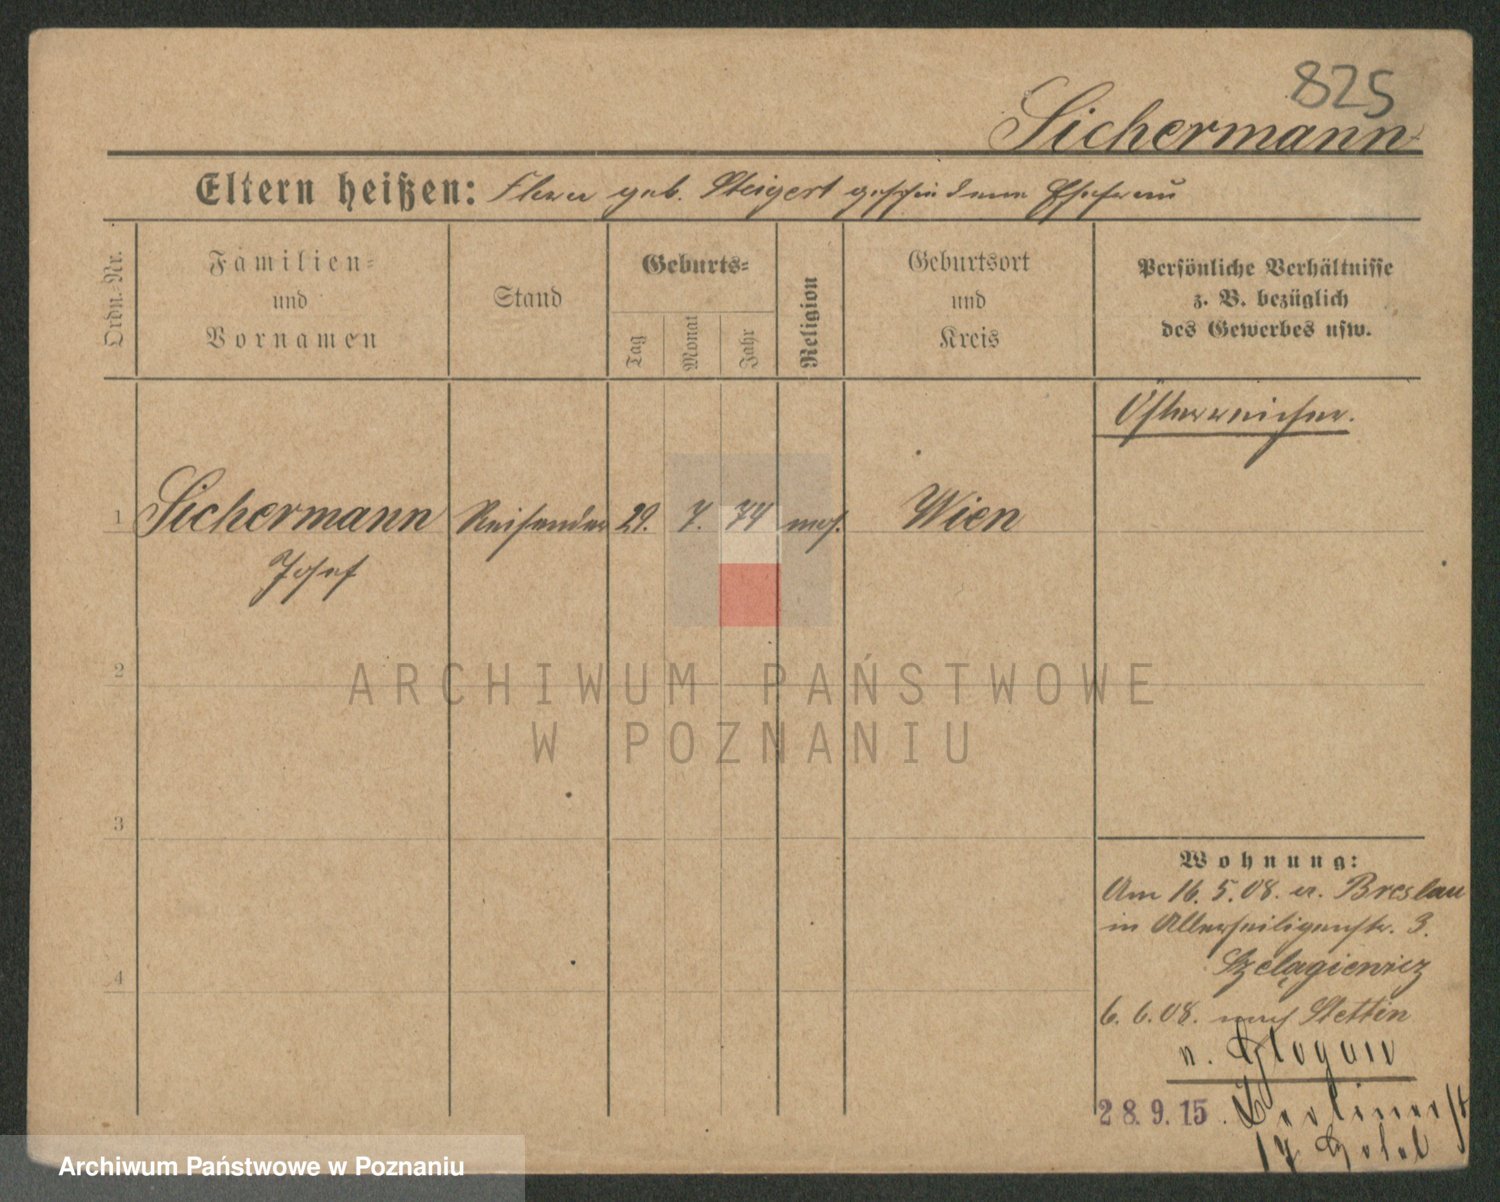 825
Sichermann
Eltern heißen: Flora geb. Steigert geschiedene Ehefrau
Ordn. Nr.
Familien-
und
Vornamen
Stand
Geburts-
Tag
Monat
Jahr
Religion
Geburtsort
und
Kreis
Persönliche Verhältnisse
z. B. bezüglich
des Gewerbes usw.
Österreicher.
1 Sichermann Reisender 29. 7. 74 mos. Wien
Josef
2
ARCHIWUM PAŃSTWOWE
W POZNANIU
3
4
Wohnung:
Am 16.5.08. Breslau
in Allerheiligenstr. 3.
Szelągiewicz
6.6.08. nach Stettin
n. Glogau
28.9.15. Berlinerst
17 Hotel
Archiwum Państwowe w Poznaniu